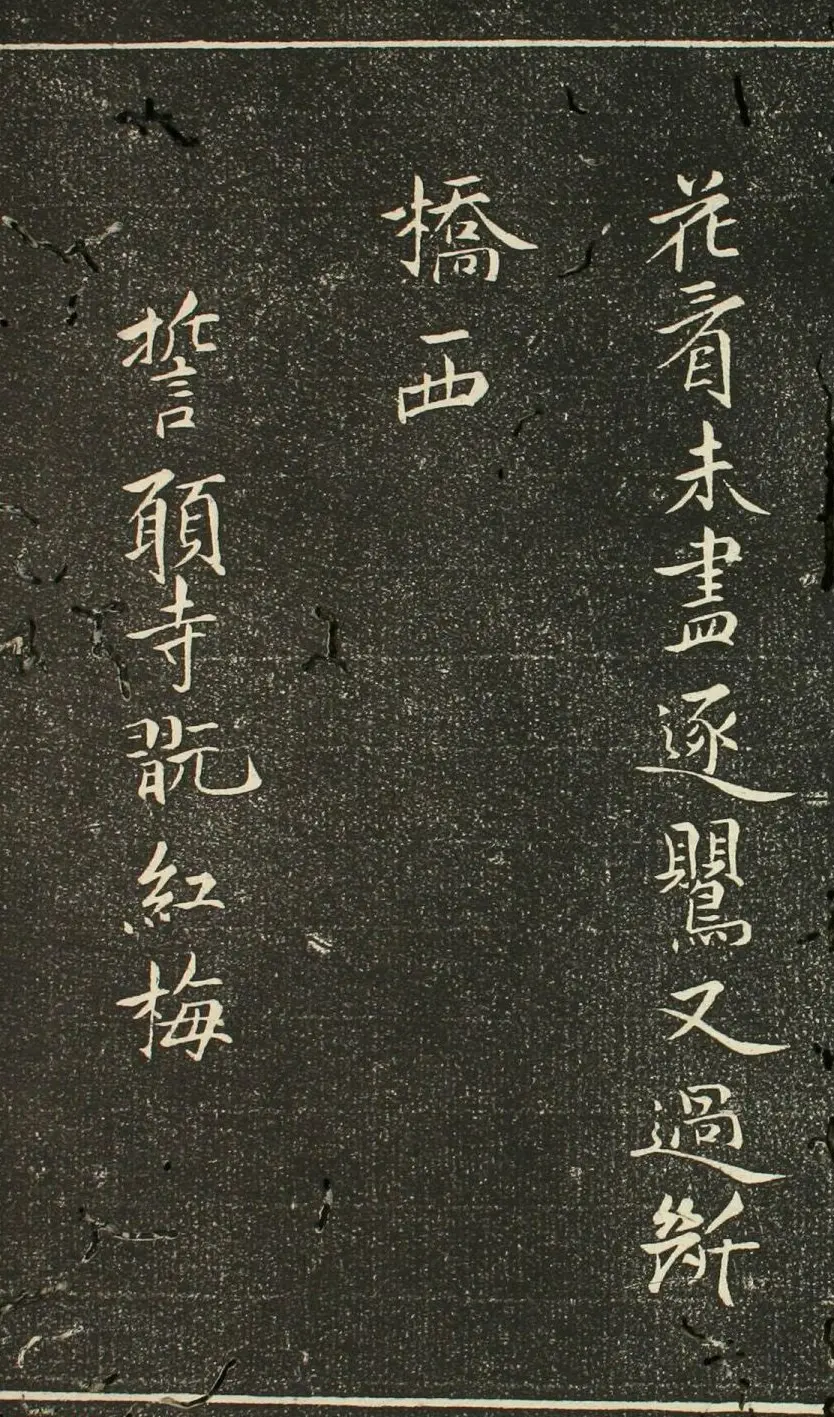 花看未盡逐鸎又過斷
橋西
誓願寺翫紅梅